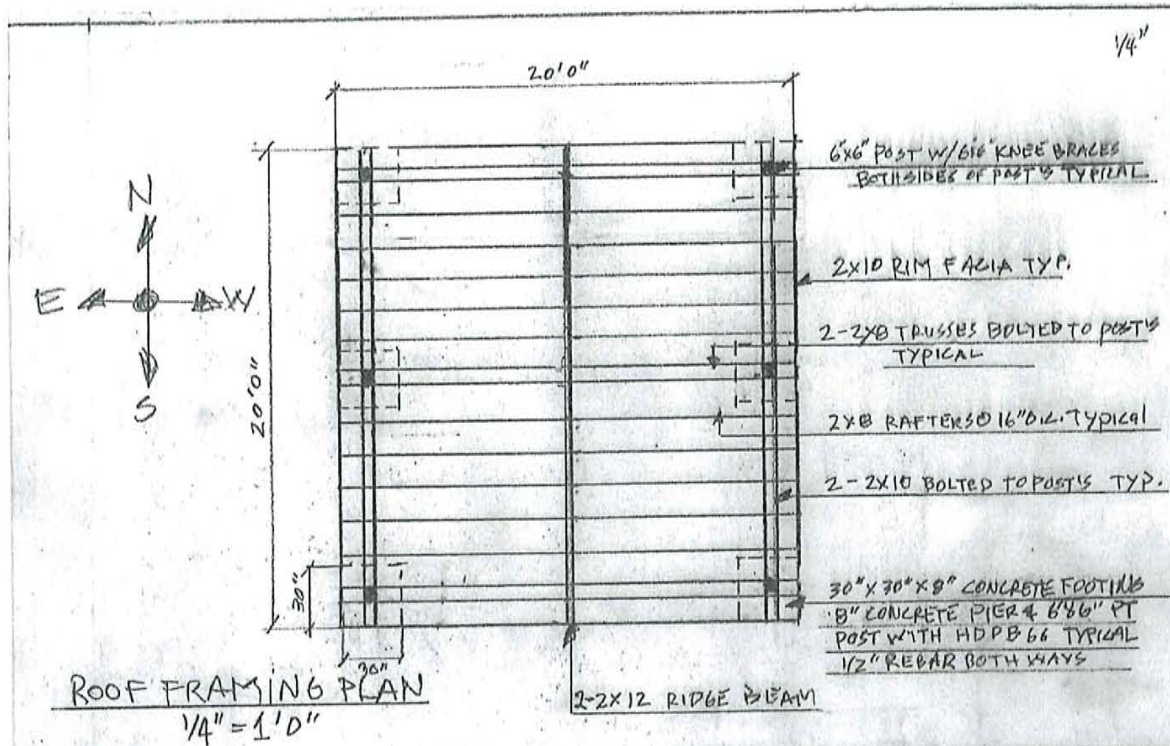 1/4"
20'0"
6x6" POST W/6x6" KNEE BRACES
BOTH SIDES OF POST'S TYPICAL
N
E W
S
2X10 RIM FACIA TYP.
2-2X8 TRUSSES BOLTED TO POST'S
TYPICAL
20'0"
2X8 RAFTERS @ 16" O.C. TYPICAL
2-2X10 BOLTED TO POST'S TYP.
30"
30" X 30" X 8" CONCRETE FOOTING
8" CONCRETE PIER & 6"x6" PT
POST WITH HDPB 66 TYPICAL
1/2" REBAR BOTH WAYS
30"
ROOF FRAMING PLAN
1/4" = 1'0"
2-2X12 RIDGE BEAM